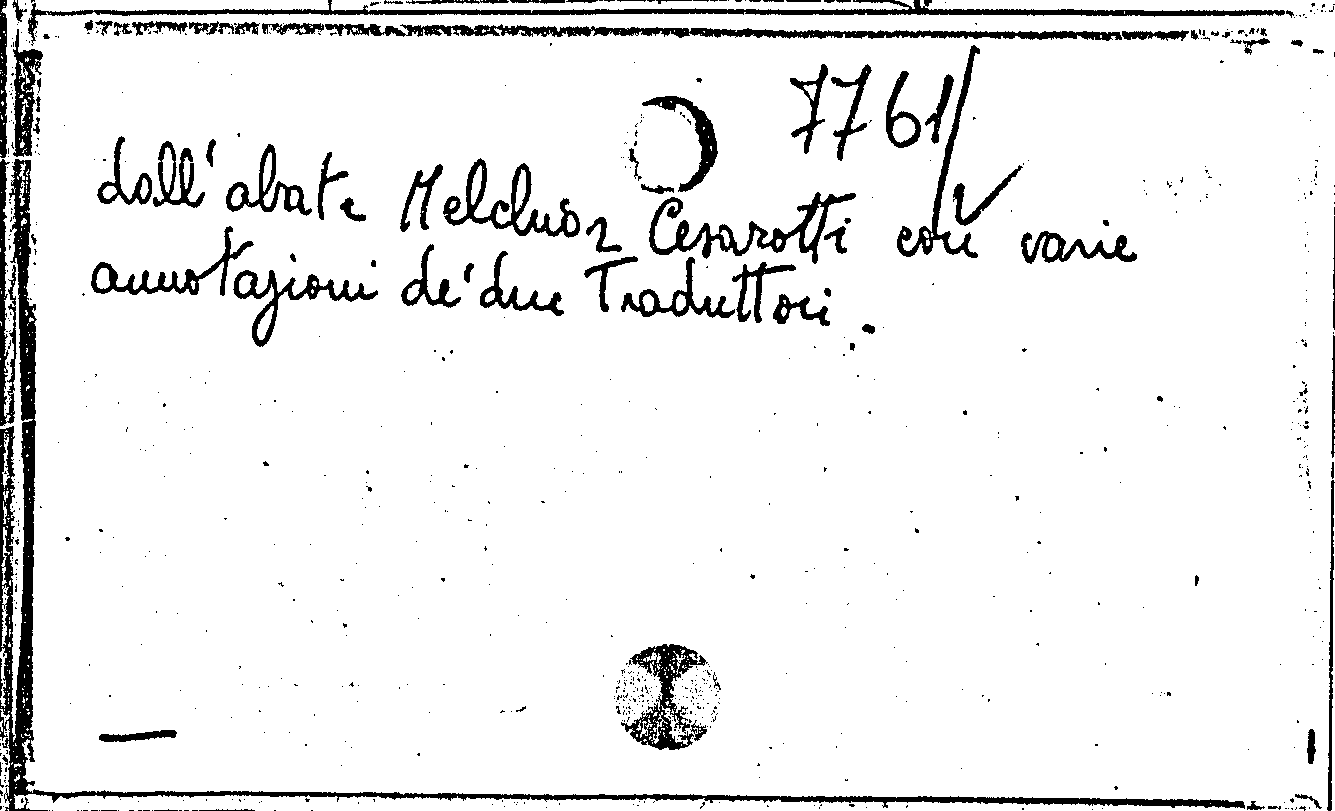 7761
dall'abate Melchior Cesarotti con varie
annotazioni de' due Traduttori.